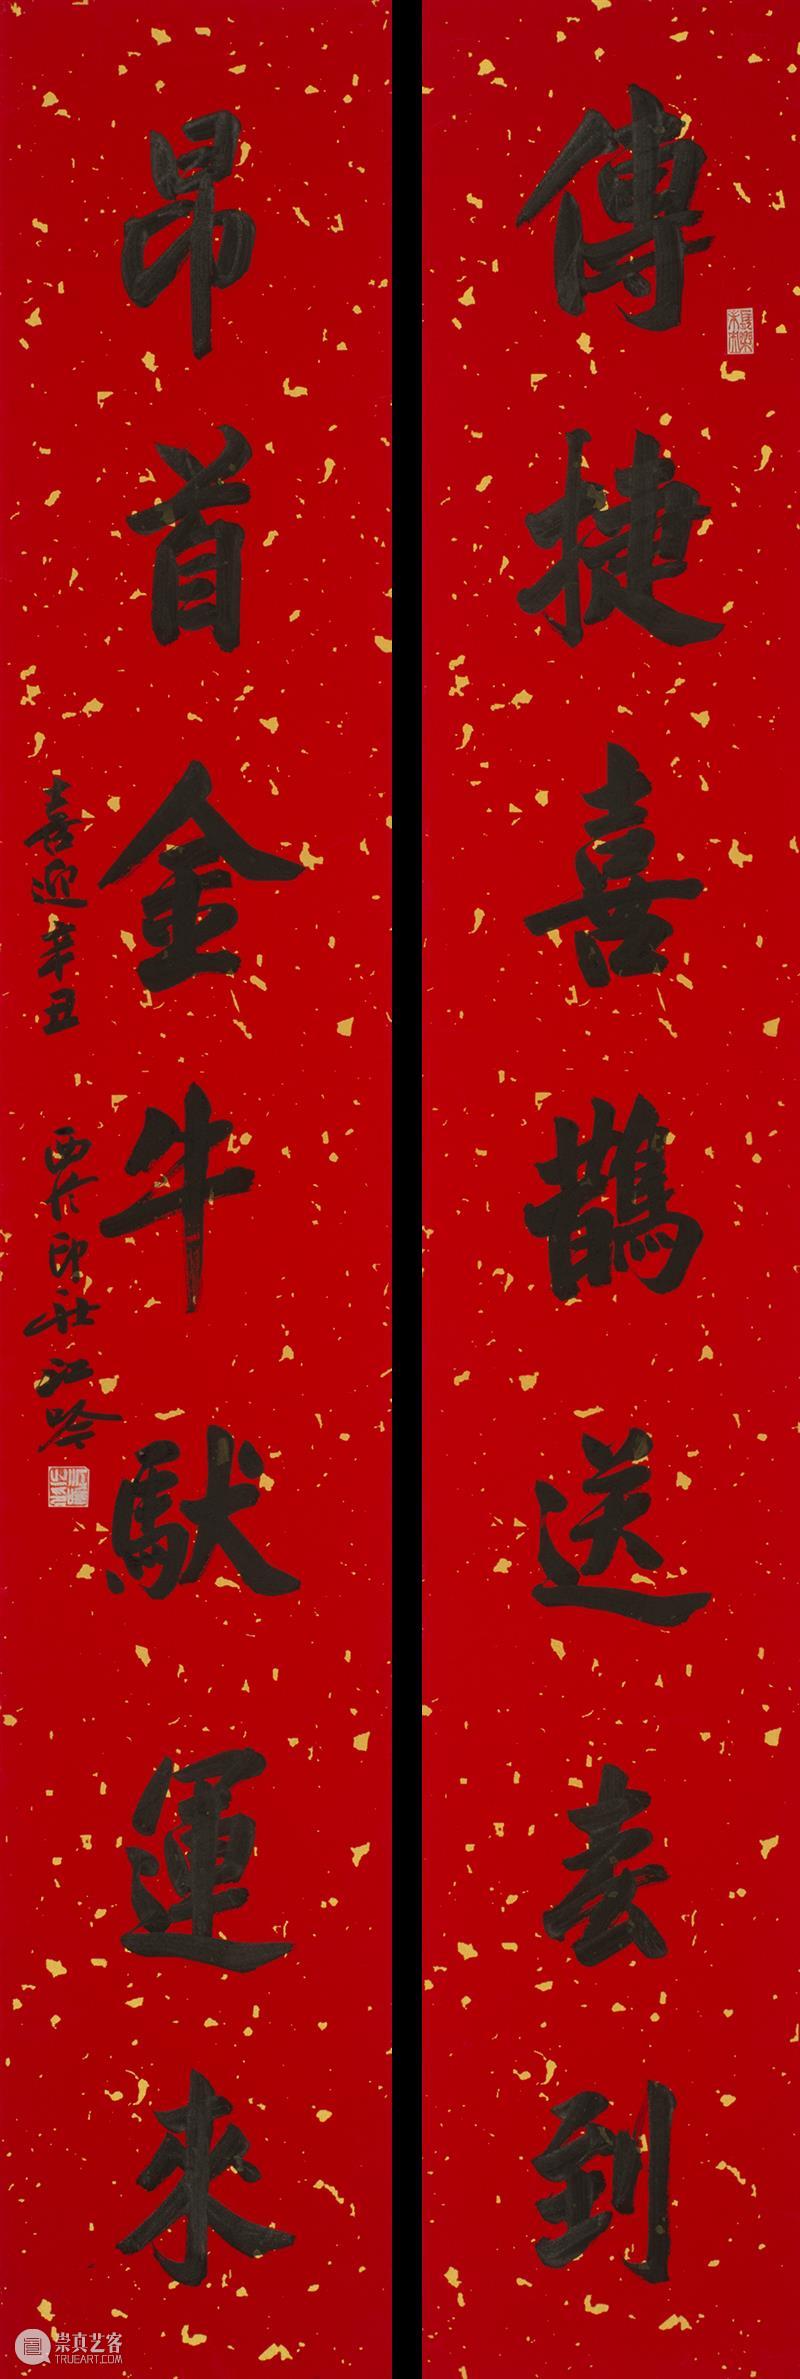 傳捷喜鵲送春到
昂首金牛馱運來
喜迎辛丑
西泠印社江吟
崇真艺客
TRUEART.COM